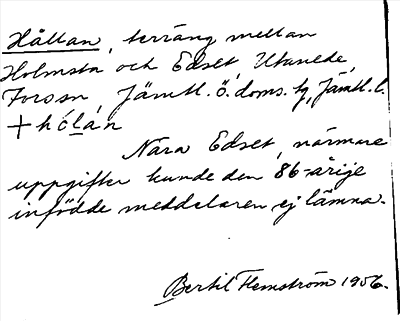 Hållan, terräng mellan
Holmsta och Edset, Utanede,
Forssn, Jämtl. ö. doms. tg, Jämtl. l.
+ hólàn
Nära Edset, närmare
uppgifter kunde den 86-årige
infödde meddelaren ej lämna.
Bertil Flemström 1956.